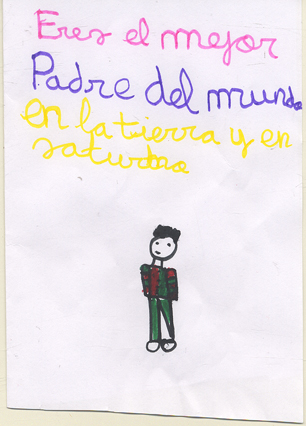 Eres el mejor
Padre del mundo
en la tierra y en
saturno